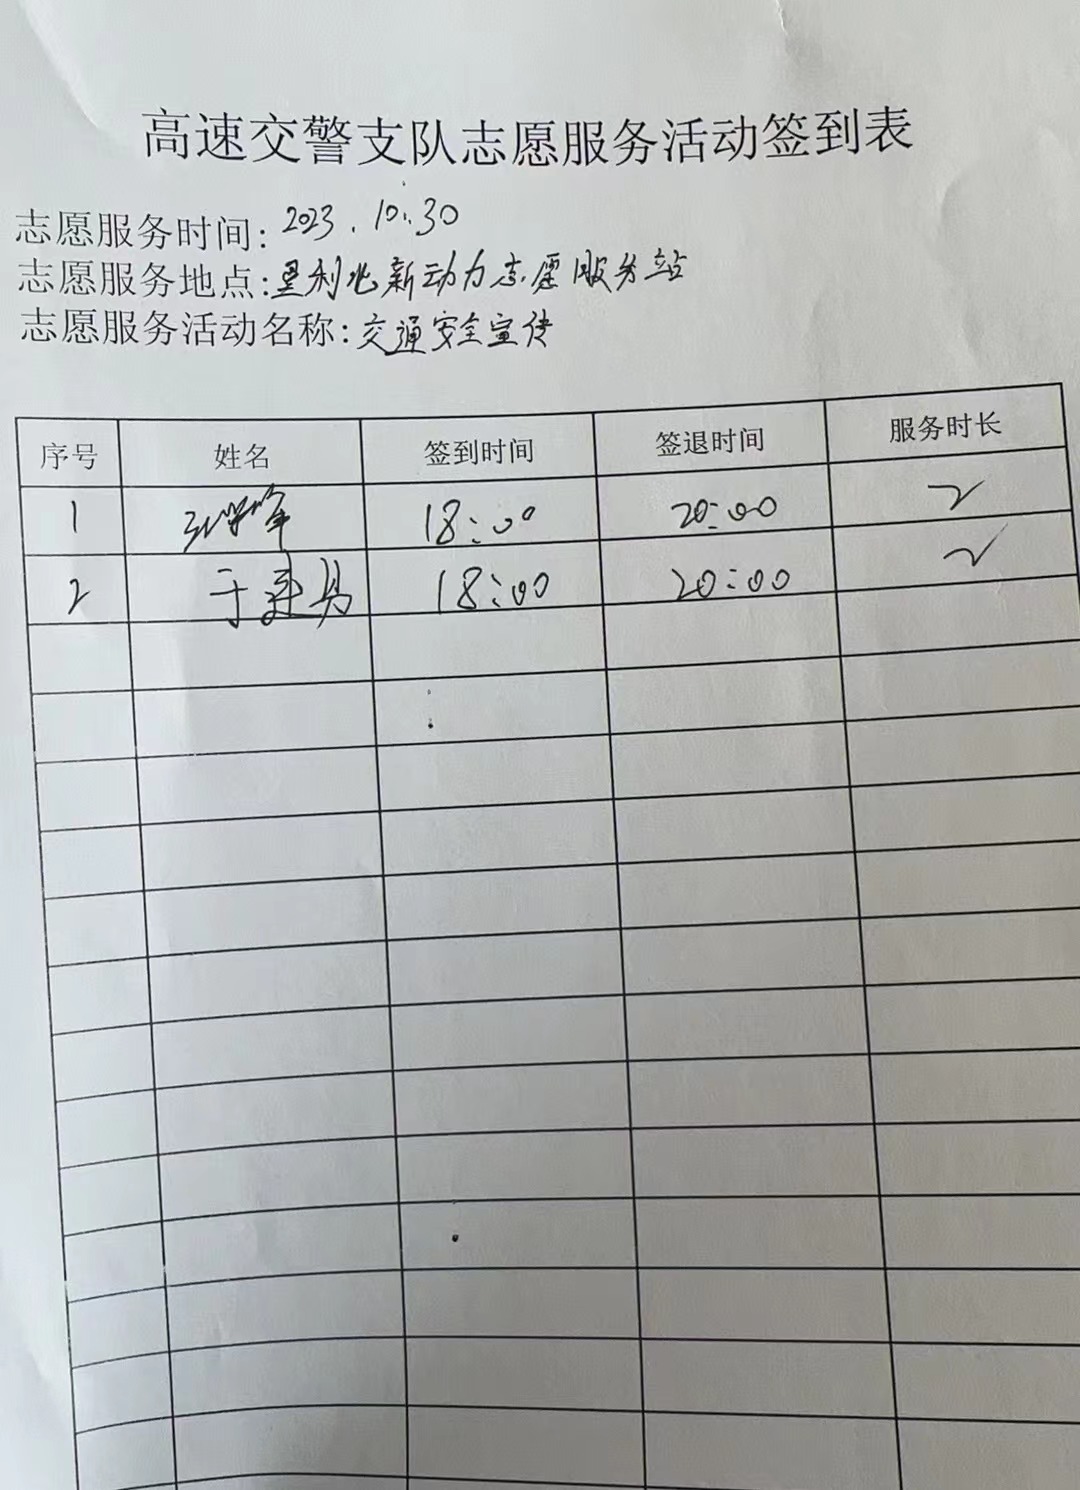 高速交警支队志愿服务活动签到表
志愿服务时间: 2023.10.30
志愿服务地点: 垦利北新动力志愿服务站
志愿服务活动名称: 交通安全宣传
序号 姓名 签到时间 签退时间 服务时长
1 18:00 20:00 2
2 于 18:00 20:00 2